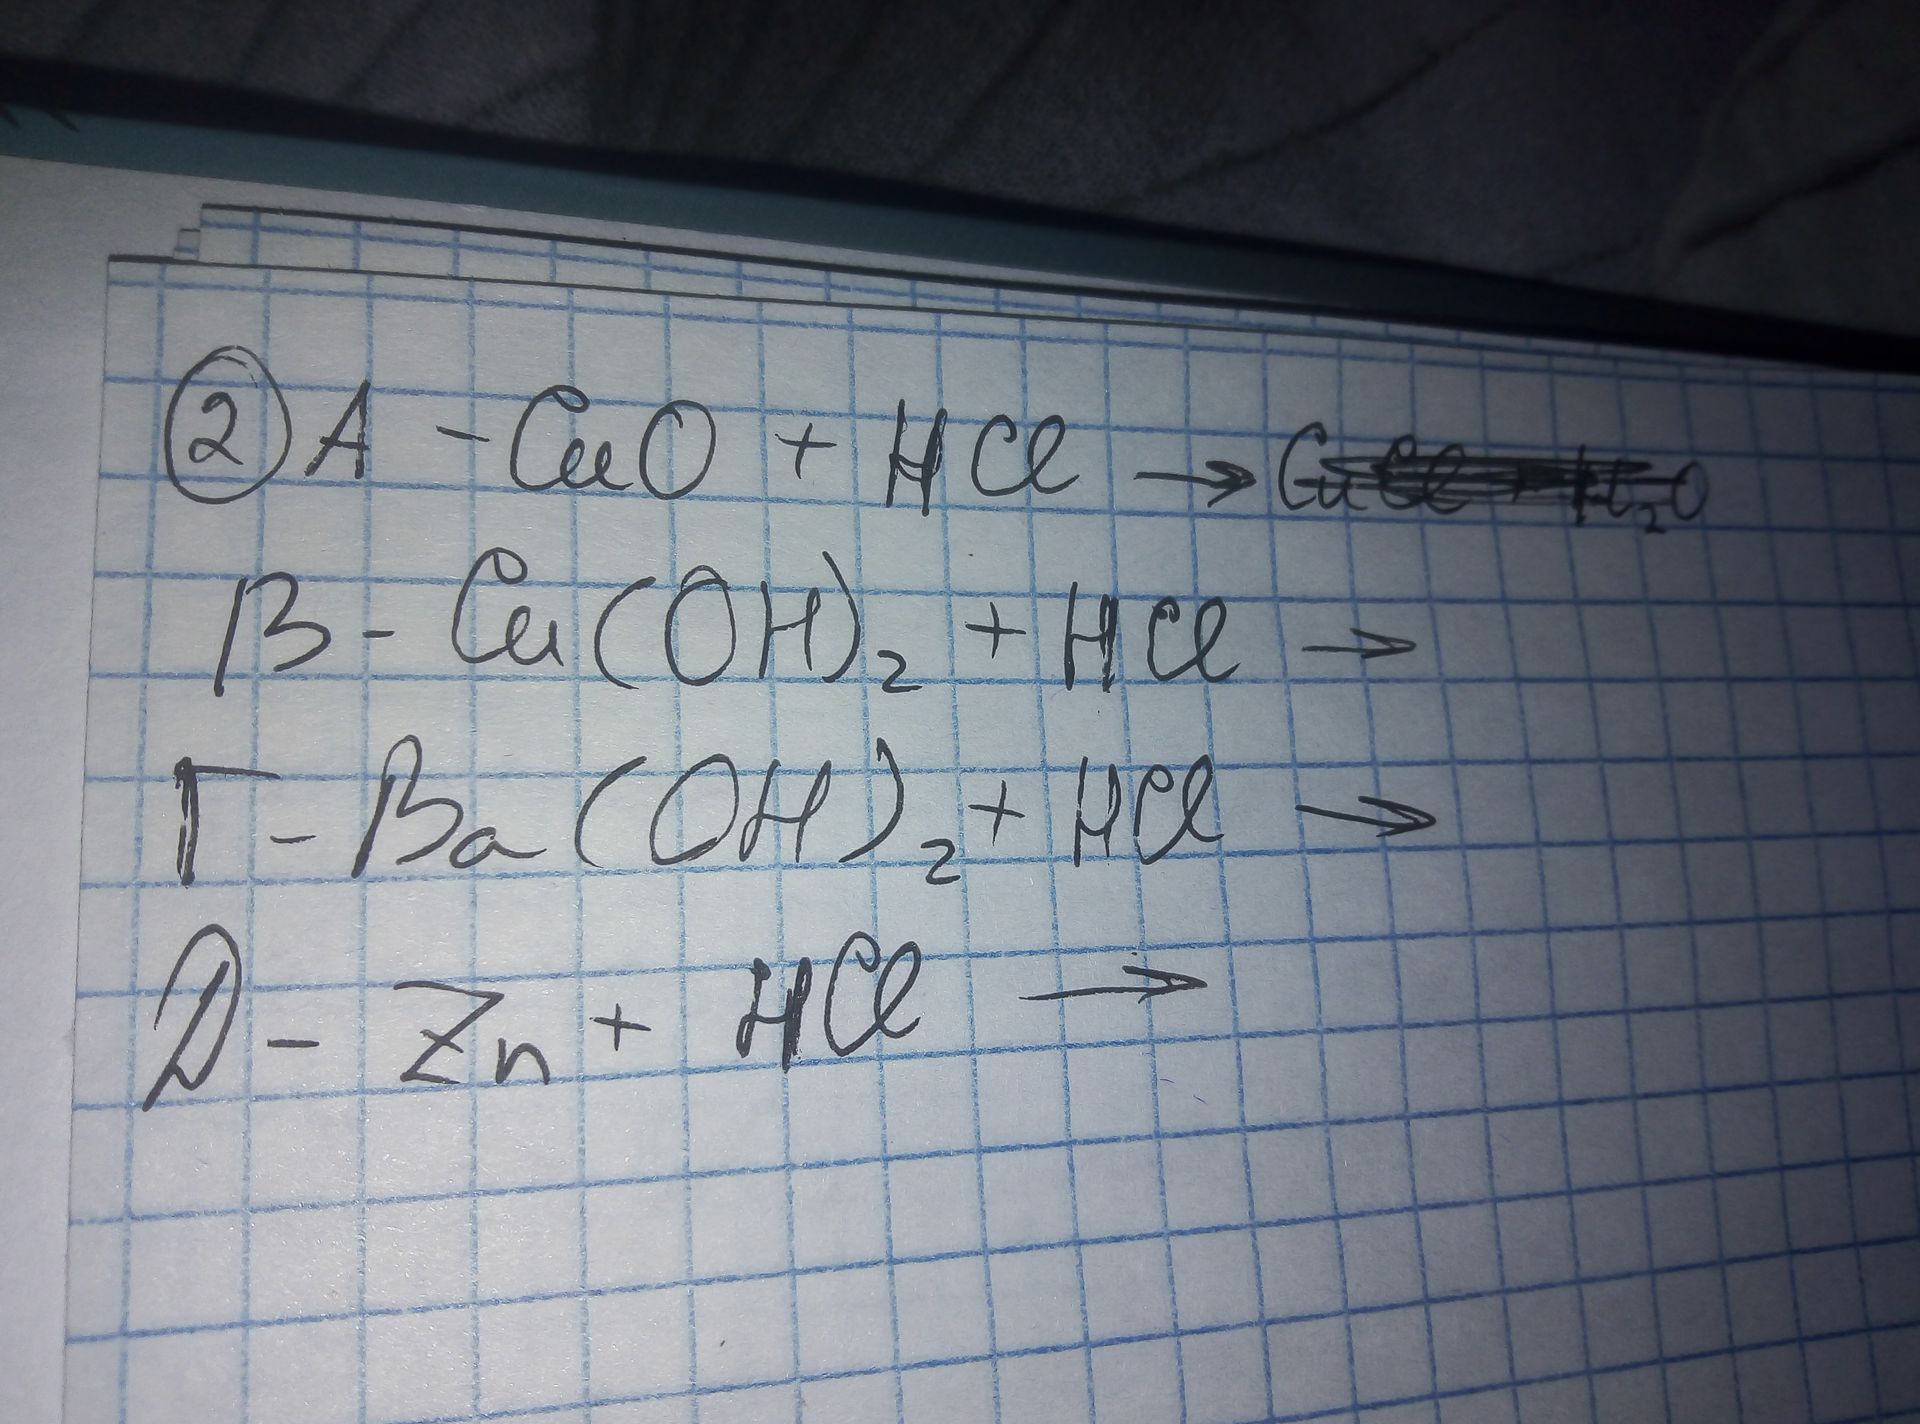 ② А - CuO + HCl →
В - Cu(OH)₂ + HCl →
Г - Ba(OH)₂ + HCl →
Д - Zn + HCl →